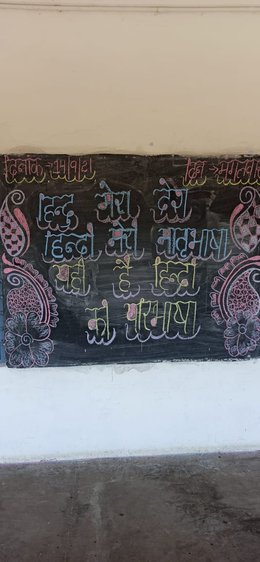 दिनांक → दिन → मंगलवार
हिन्द मेरा देश
हिन्दी मेरी मातृभाषा
यही है हिन्दी
की परिभाषा